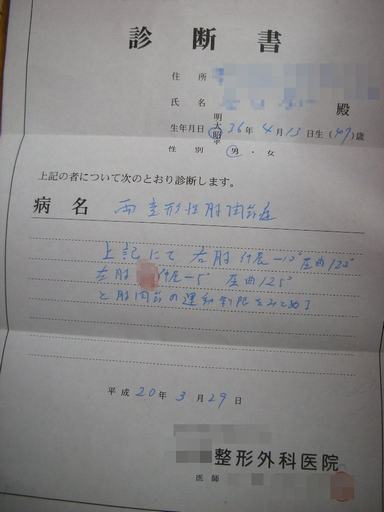 診断書
住所
氏名 殿
明大昭平
生年月日 36年4月13日生(47)歳
性別 男・女
上記の者について次のとおり診断します。
病名 両変形性肘関節症
上記にて 右肘 伸展 屈曲 120°
左肘 伸展-5° 屈曲125°
と肘関節の運動制限をみとめる
平成20年3月29日
整形外科医院
医師